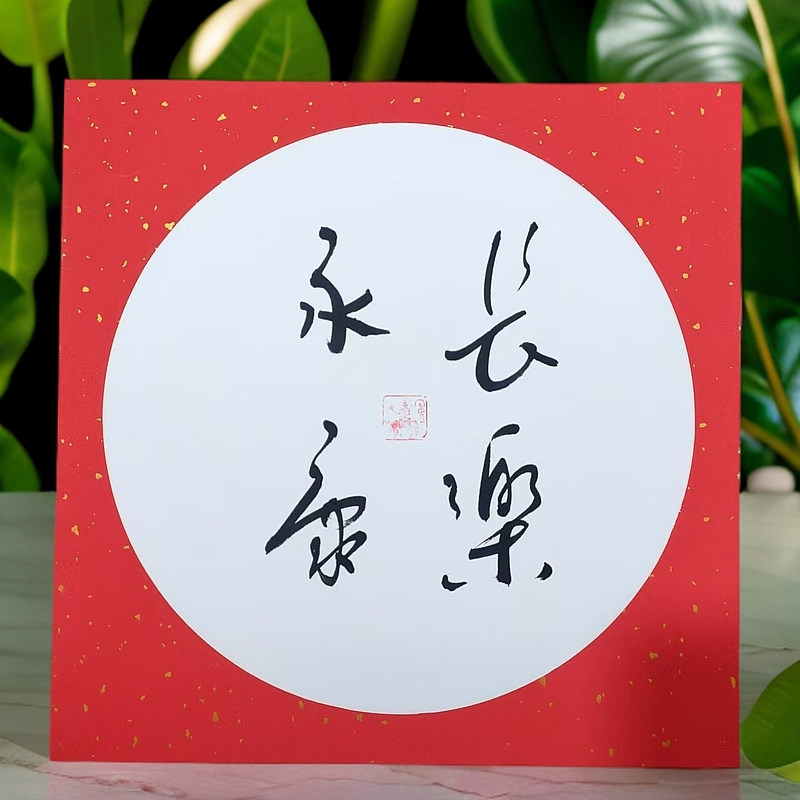 長樂
永康